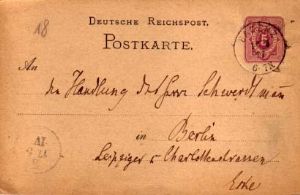 18
DEUTSCHE REICHSPOST.
POSTKARTE.
An
die Handlung des Herrn Schwerdtmann
in Berlin
Leipziger u Charlottenstrassen
Ecke